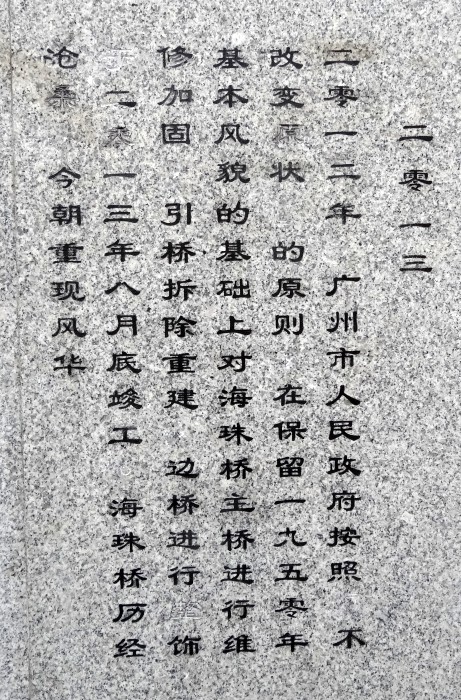 二零一三
二零一二年 广州市人民政府按照 不
改变原状 的原则 在保留一九五零年
基本风貌的基础上对海珠桥主桥进行维
修加固 引桥拆除重建 边桥进行 饰
于二零一三年八月底竣工 海珠桥历经
沧桑 今朝重现风华